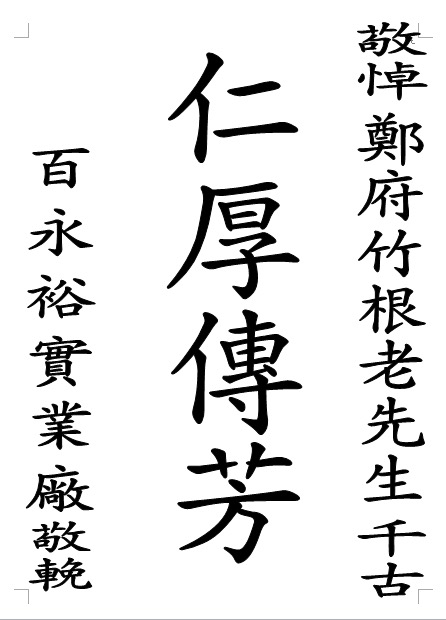 敬悼鄭府竹根老先生千古
仁厚傳芳
百永裕實業廠敬輓